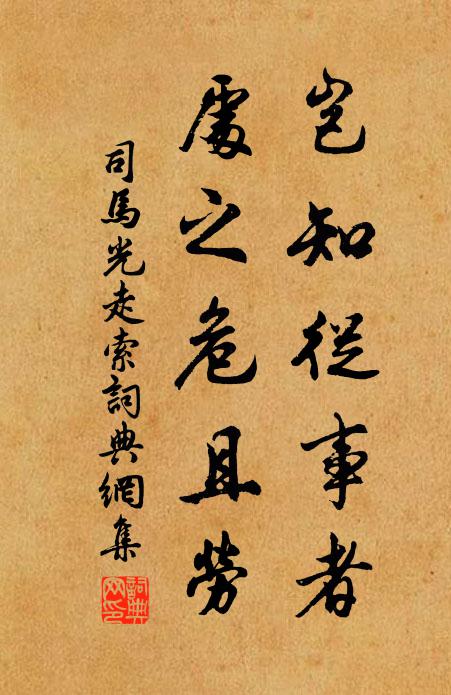 豈知從事者
處之危且勞
司馬光走索詞典網集
詞典網印